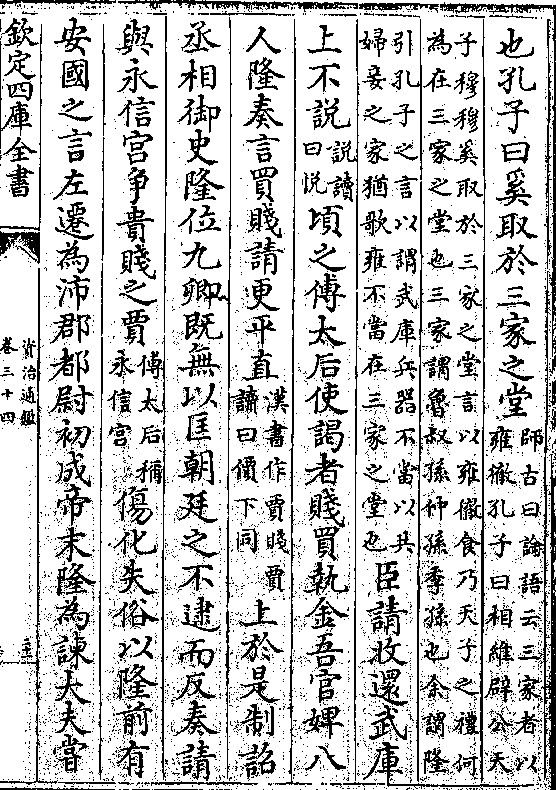 也孔子曰奚取於三家之堂師古曰論語云三家者以雍徹孔子曰相維辟公天
子穆穆奚取於三家之堂言以雍徹食乃天子之禮何為在三家之堂也三家謂魯叔孫仲孫季孫也余謂隆
引孔子之言以謂武庫兵器不當以共婦妾之家猶歌雍不當在三家之堂也臣請收還武庫
上不說說讀曰悦頃之傅太后使謁者賤買執金吾官婢八
人隆奏言買賤請更平直漢書作賈賤賈讀曰價下同上於是制詔
丞相御史隆位九卿既無以匡朝廷之不逮而反奏請
與永信宫争貴賤之賈傅太后稱永信宫傷化失俗以隆前有
安國之言左遷為沛郡都尉初成帝末隆為諫大夫嘗
欽定四庫全書
資治通鑑
卷三十四